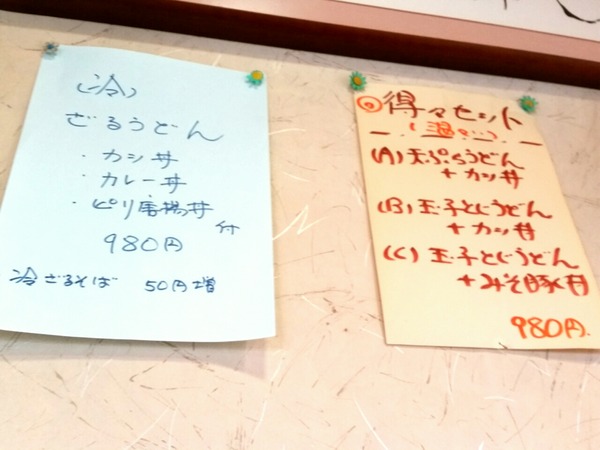 (冷)
ざるうどん
・カツ丼
・カレー丼
・ピリ唐揚丼
付
980円
冷ざるそば 50円増
◎得々セット
(温・・・)
(A)天ぷらうどん
+カツ丼
(B)玉子とじうどん
+カツ丼
(C)玉子とじうどん
+みそ豚丼
980円